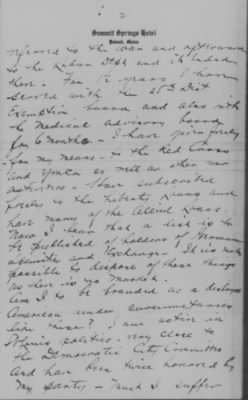 2
Summit Springs Hotel
Poland, Maine
referred to the war and afterward
to the Liban it ended
there. For 1½ years I have
served with the 25th Dist
Exemption board and also with
the Medical advisory board
for 6 months - I have given freely
from my means - to the Red Cross
and YMCA as well as other war
activities - Have subscribed
freely to the Liberty Loans and
have many of the Allied Loans.
Now I hear that a list is to
be published of holders of German
securities and Exchange! It is not
possible to dispose of these things
as there is no market.
Am I to be branded as a disloyal
American under circumstances
like these? I am active in
politics - very close to
the Democratic City Committee
and have been twice honored by
my party - Must I suffer